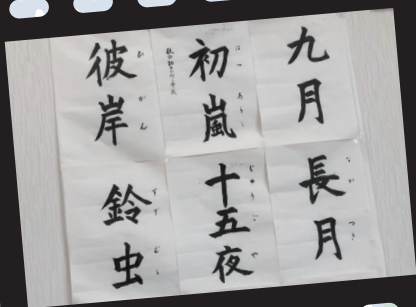 九月
長月
ながつき
初嵐
はつあらし
十五夜
じゅうごや
彼岸
ひがん
鈴虫
すずむし